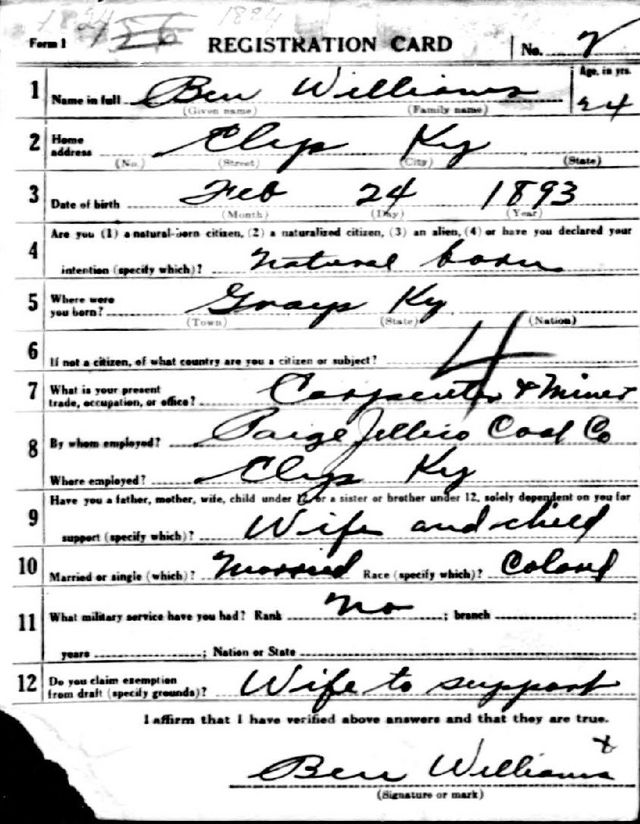 Form 1 REGISTRATION CARD No. 2
1 Name in full Ben Williams Age, in yrs. 24
(Given name) (Family name)
2 Home address Clyp Ky
(No.) (Street) (City) (State)
3 Date of birth Feb 24 1893
(Month) (Day) (Year)
4 Are you (1) a natural-born citizen, (2) a naturalized citizen, (3) an alien, (4) or have you declared your
intention (specify which)? natural born
5 Where were you born? Grays Ky
(Town) (State) (Nation)
6 If not a citizen, of what country are you a citizen or subject?
4
7 What is your present trade, occupation, or office? Carpenter & Miner
8 By whom employed? Paige Jellico Coal Co
Where employed? Clyp Ky
9 Have you a father, mother, wife, child under 12, or a sister or brother under 12, solely dependent on you for
support (specify which)? Wife and child
10 Married or single (which)? Married Race (specify which)? Colord
11 What military service have you had? Rank no ; branch ;
years ; Nation or State
12 Do you claim exemption from draft (specify grounds)? Wife to support
I affirm that I have verified above answers and that they are true.
x
Ben Williams
(Signature or mark)